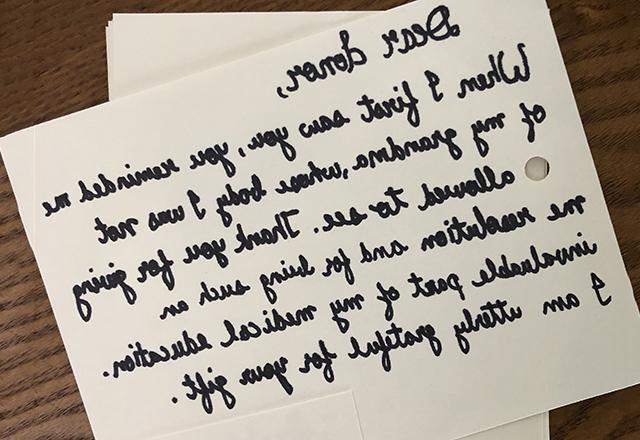 Dear donor,
When I first saw you, you reminded me
of my grandma, whose body I was not
allowed to see. Thank you for giving
me resolution and for being such an
invaluable part of my medical education.
I am utterly grateful for your gift.